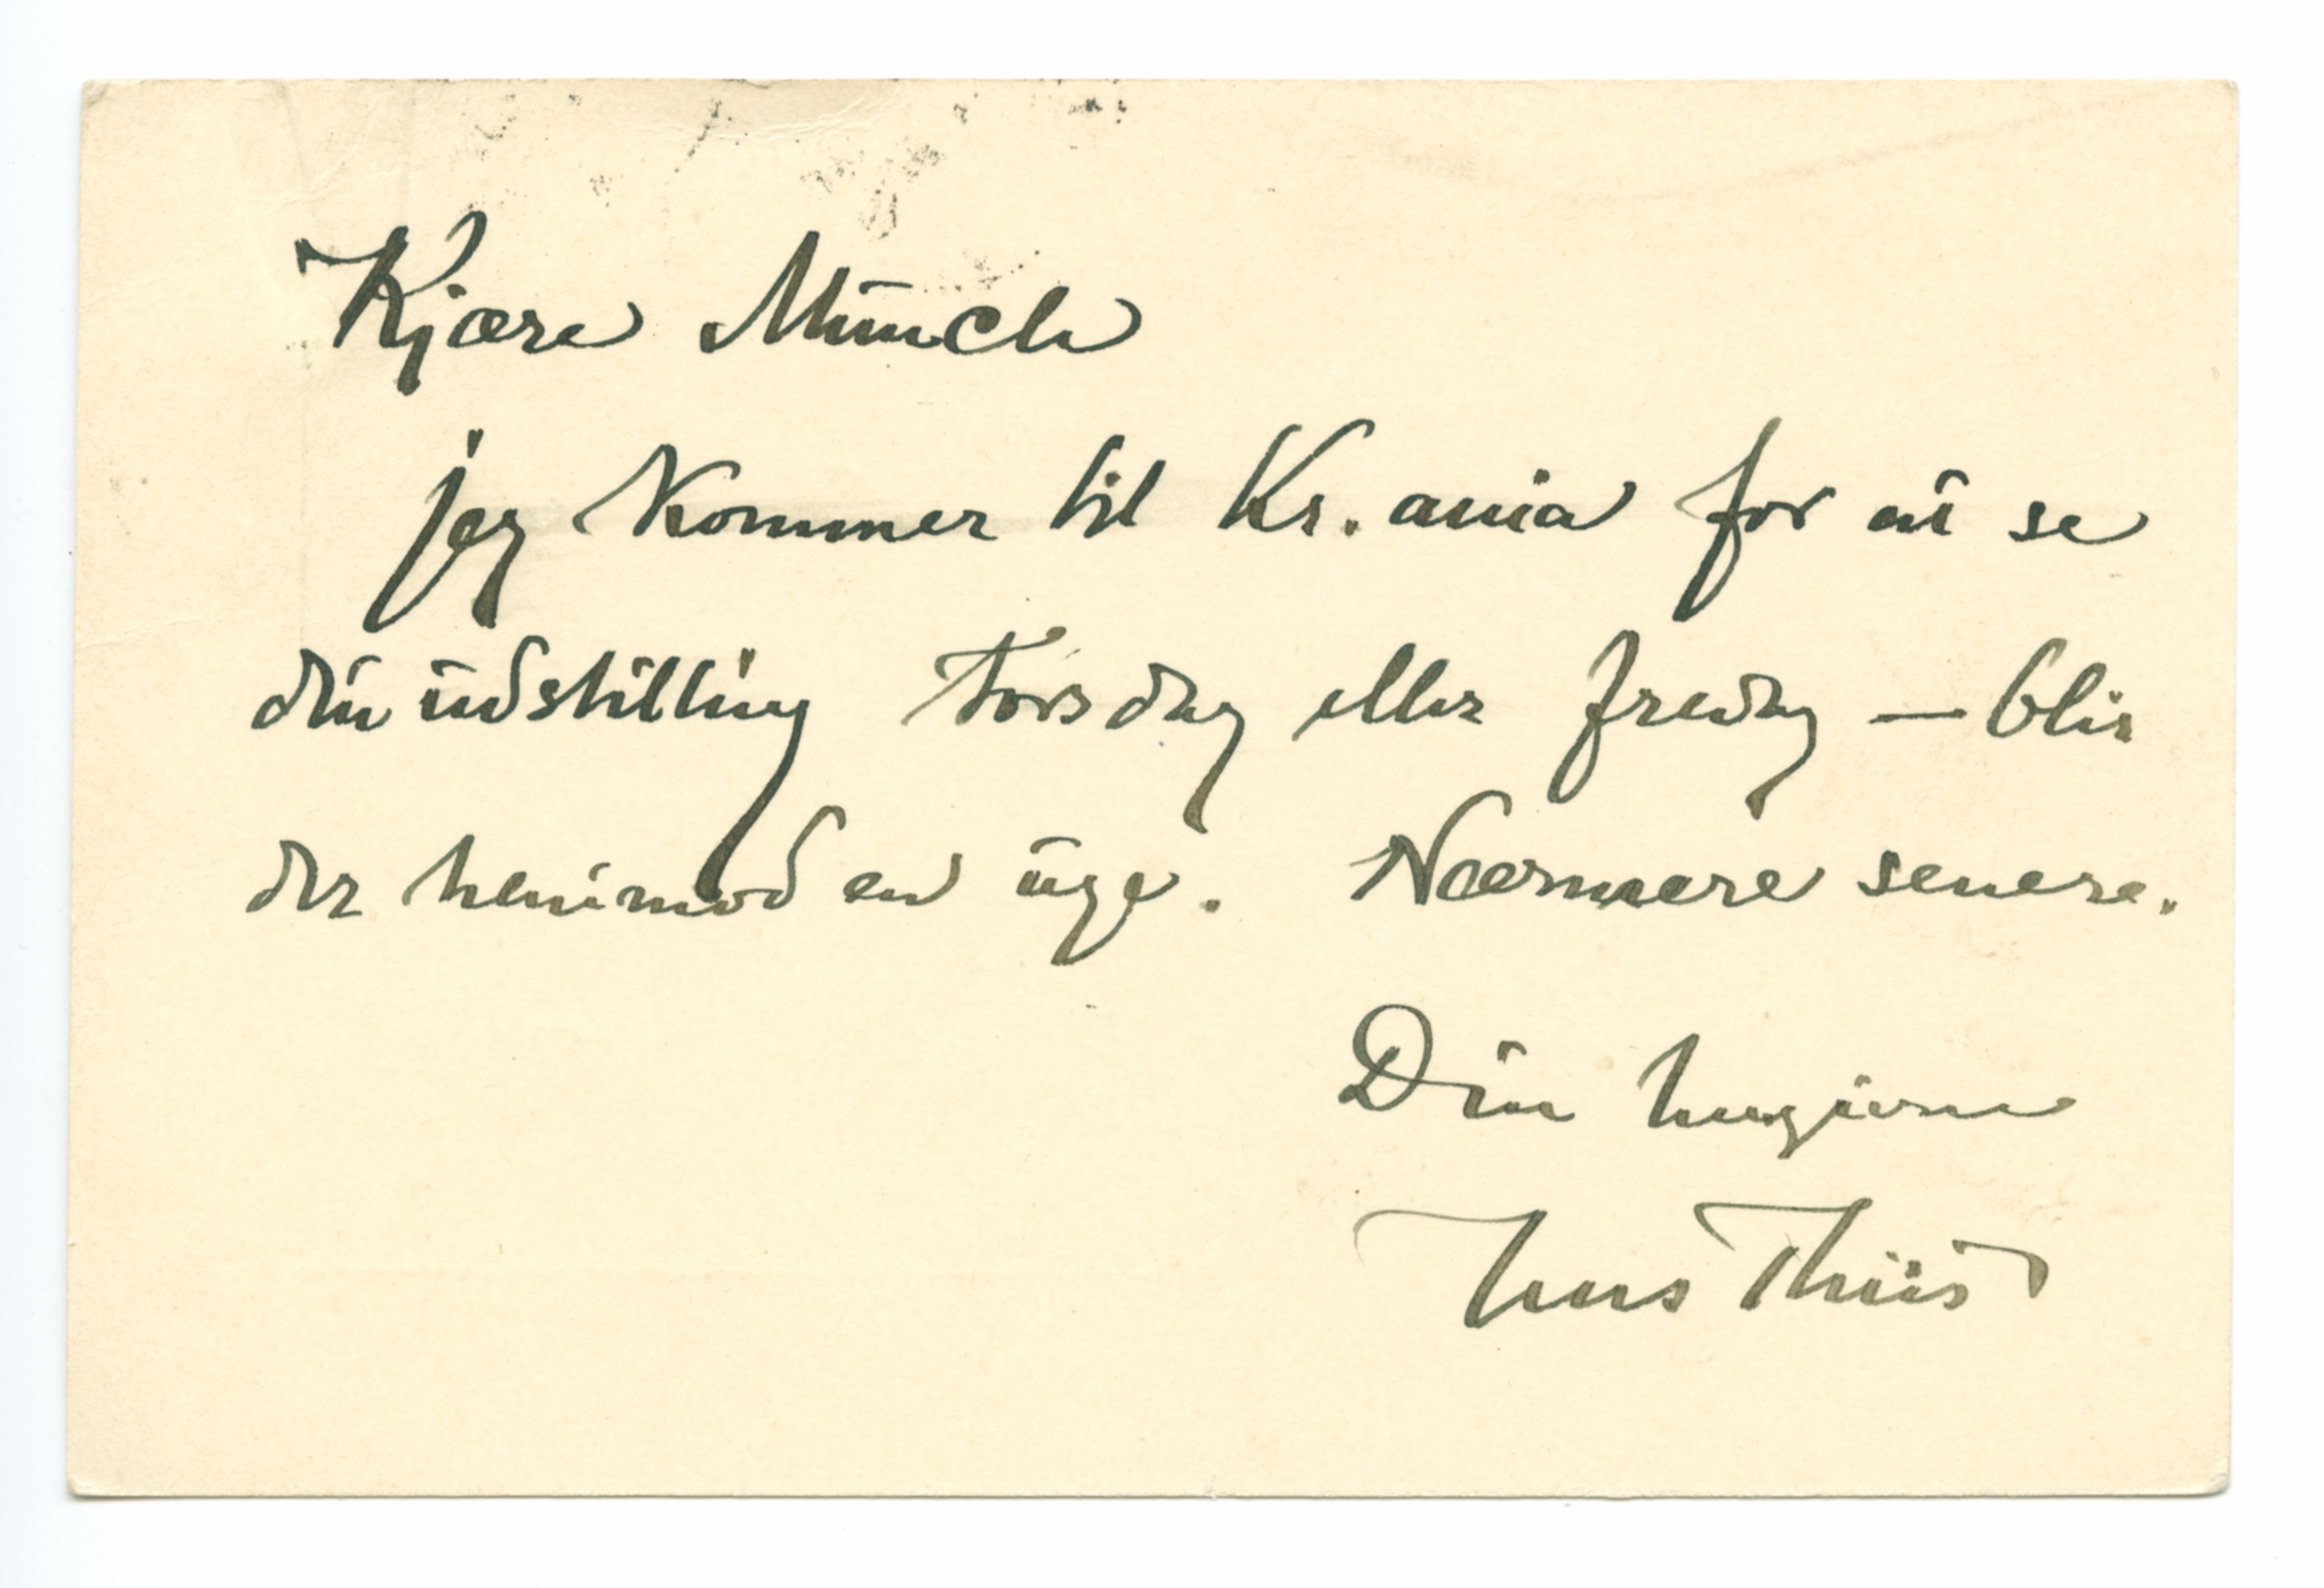 Kjære Munch
jeg kommer til Kr.ania for at se
din udstilling Torsdag eller fredag — blir
der henimod en uge. Nærmere senere.
Din hengivne
Jens Thiis